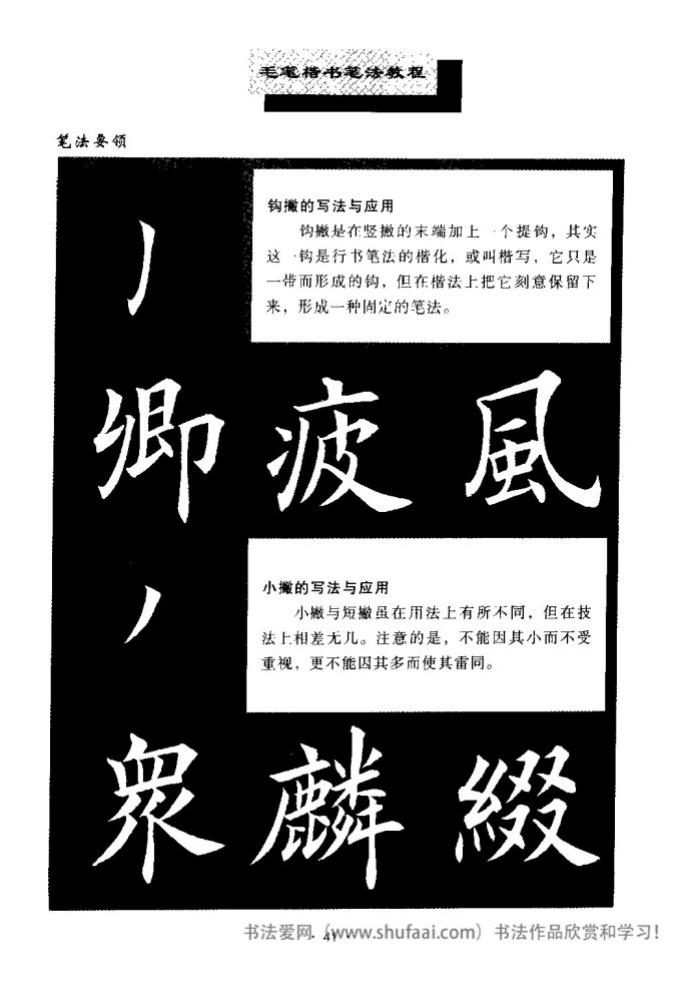 毛笔楷书笔法教程
笔法要领
钩撇的写法与应用
钩撇是在竖撇的末端加上一个提钩，其实
这一钩是行书笔法的楷化，或叫楷写，它只是
一带而形成的钩，但在楷法上把它刻意保留下
来，形成一种固定的笔法。
丿
卿 疲 風
小撇的写法与应用
小撇与短撇虽在用法上有所不同，但在技
法上相差无几。注意的是，不能因其小而不受
重视，更不能因其多而使其雷同。
丿
眾 麟 綴
· 41 ·
书法爱网（www.shufaai.com）书法作品欣赏和学习！